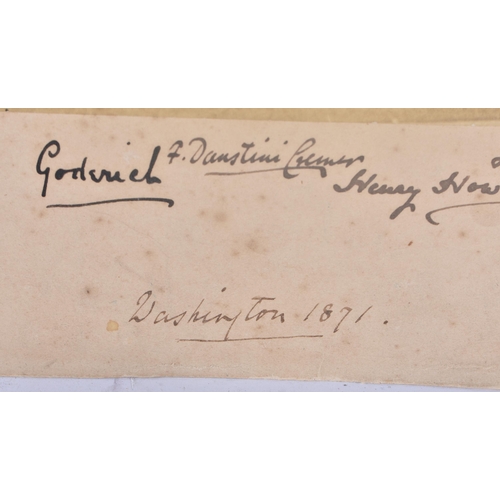 Goderich F. Dawstini Cremer Henry How
Washington 1871.